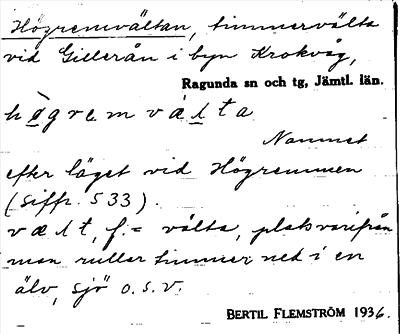 Högremvältan, timmervälta
vid Gillerån i byn Krokvåg,
Ragunda sn och tg, Jämtl. län.
hø̀gremvàlta
Namnet
efter läget vid Högremmen
(siffr. 533).
vælt, f. = välta, plats varifrån
man rullar timmer ned i en
älv, sjö o.s.v.
BERTIL FLEMSTRÖM 1936.